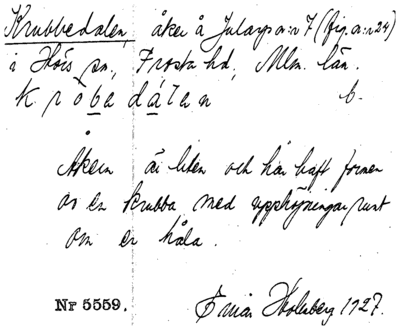 Krubbedalen, åker å Jularp a:n 7 (fig. a:n 24)
i Hörs sn, Frosta hd, Mlm. län.
kröbedalen b.
Åkern är liten och har haft formen
av en krubba med upphöjningar runt
om en håla.
Nr 5559. Holmberg 1927.